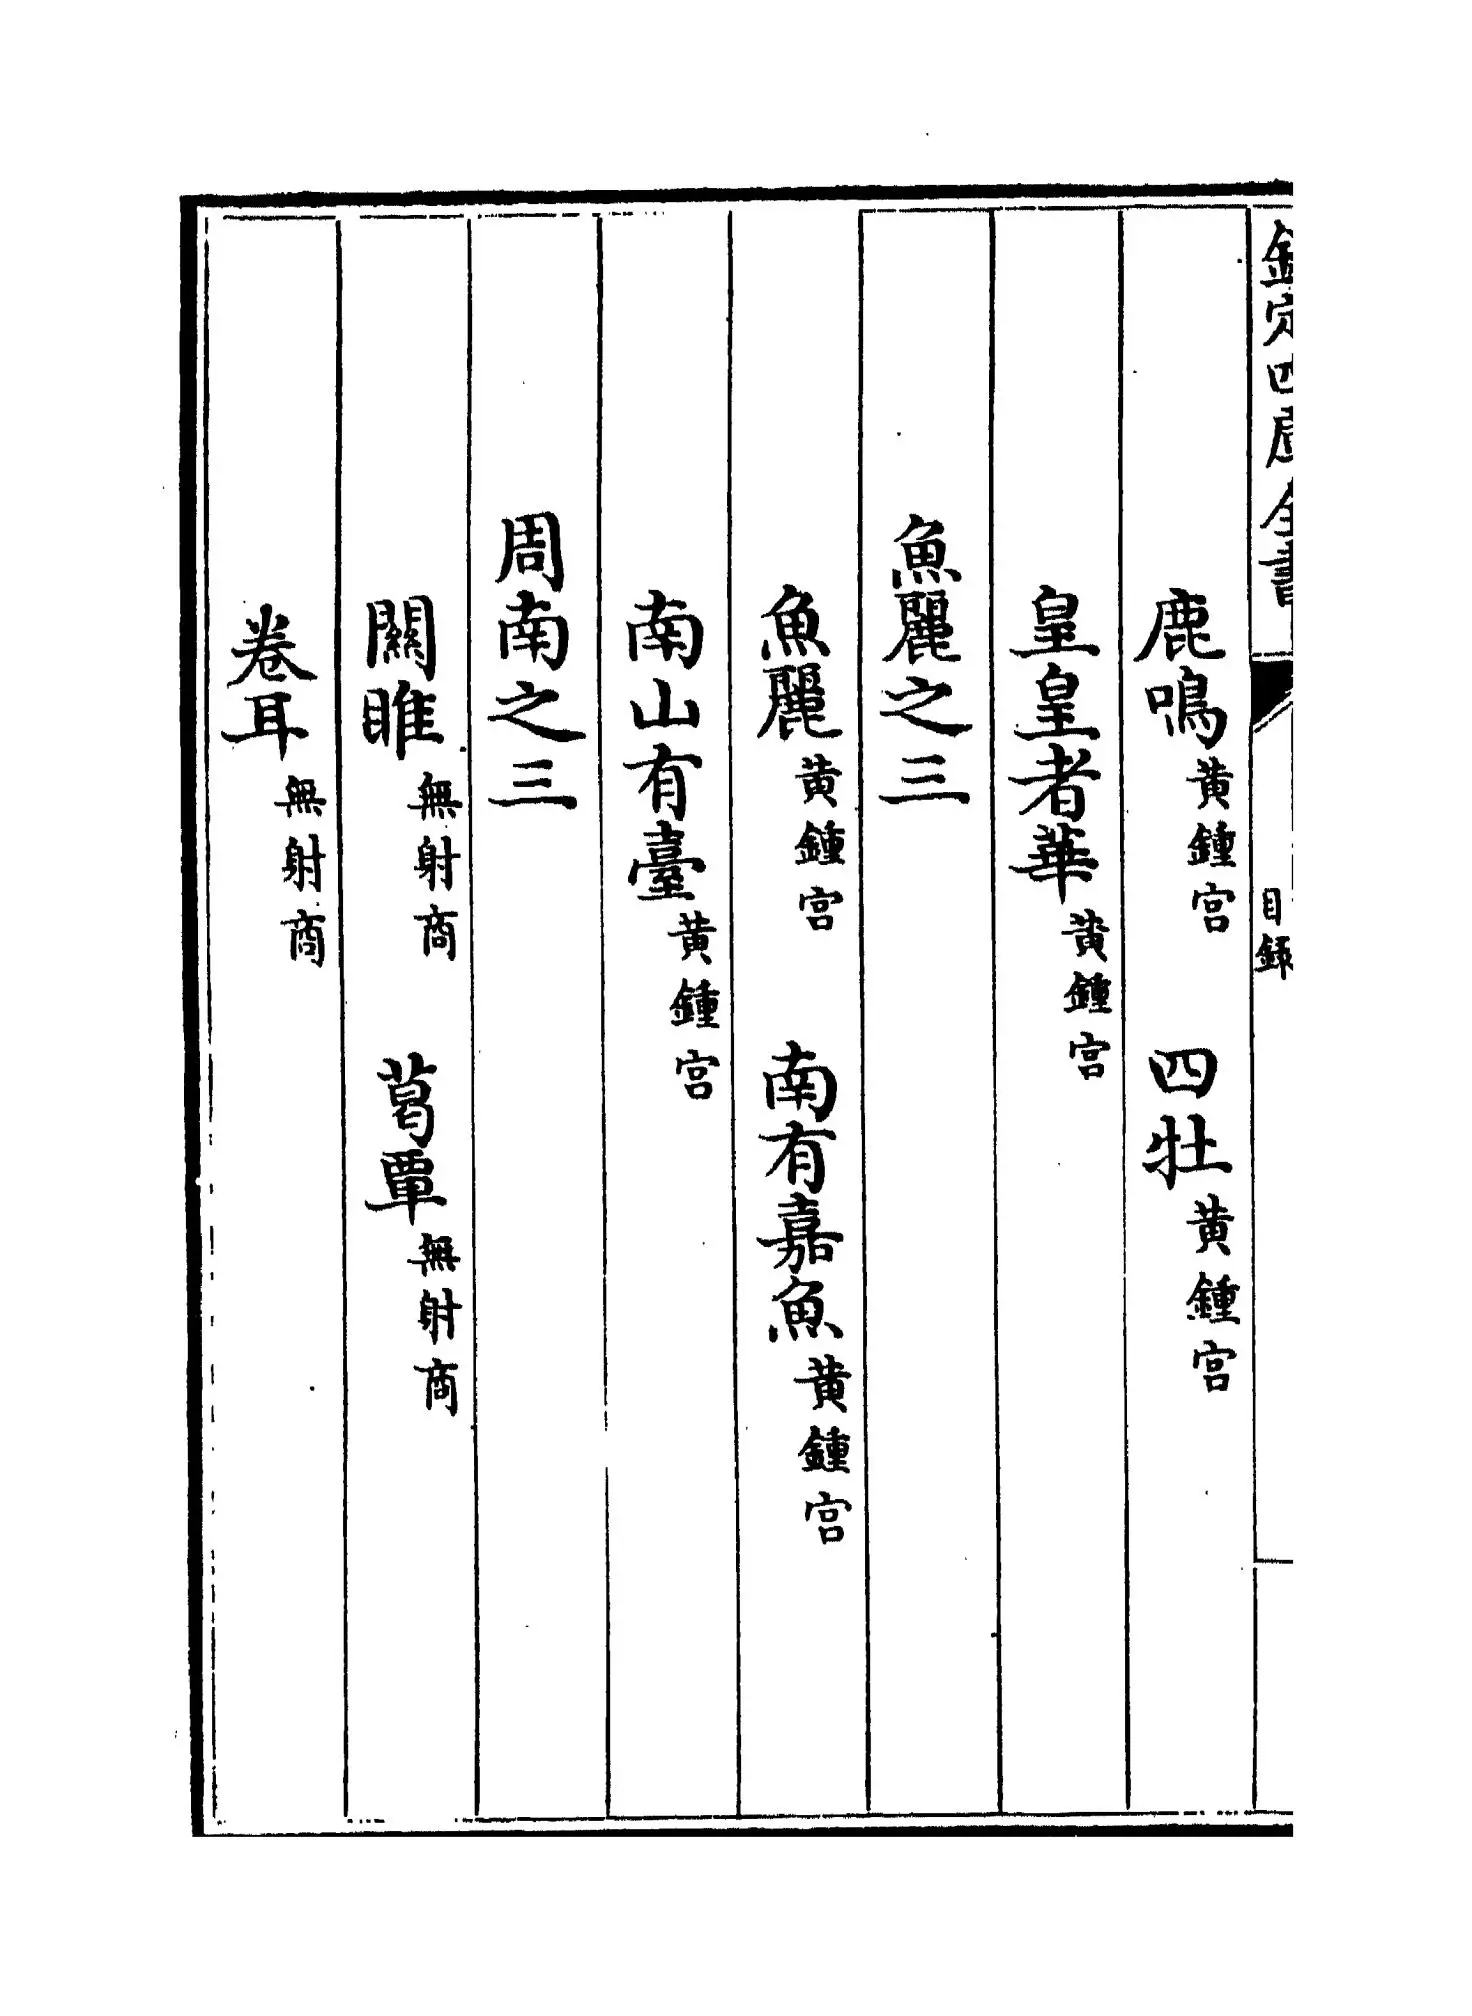 欽定四庫全書
目錄
鹿鳴黄鍾宫 四牡黄鍾宫
皇皇者華黄鍾宫
魚麗之三
魚麗黄鍾宫 南有嘉魚黄鍾宫
南山有臺黄鍾宫
周南之三
關雎無射商 葛覃無射商
卷耳無射商